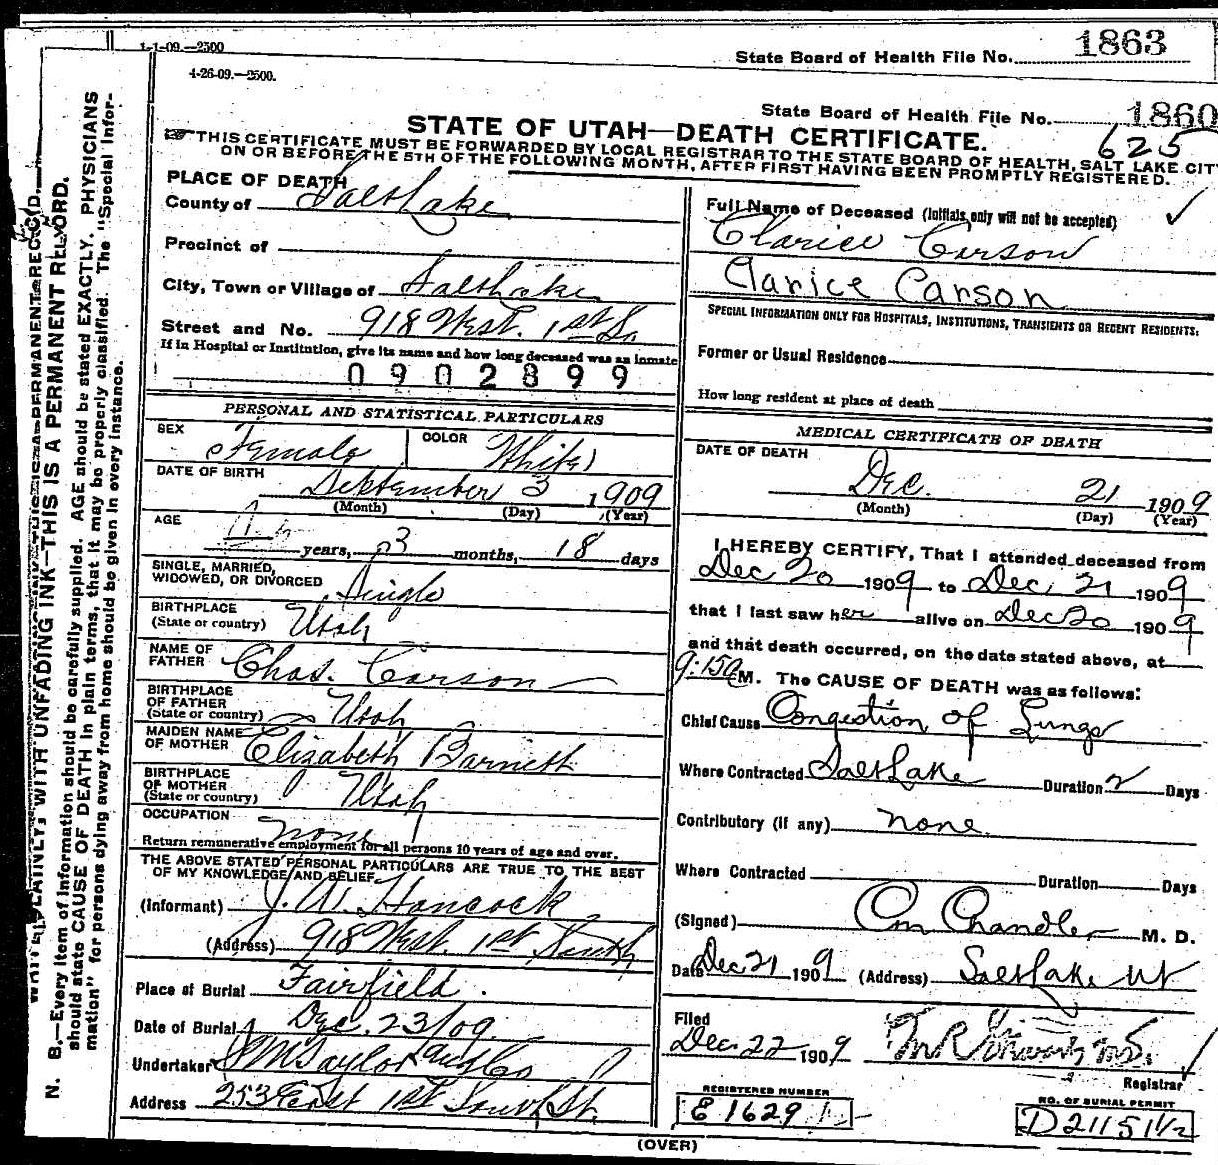 1-1-09.—2500
State Board of Health File No. 1863
4-26-09.—2500.
State Board of Health File No. 1860
625
STATE OF UTAH—DEATH CERTIFICATE.
THIS CERTIFICATE MUST BE FORWARDED BY LOCAL REGISTRAR TO THE STATE BOARD OF HEALTH, SALT LAKE CITY
ON OR BEFORE THE 5TH OF THE FOLLOWING MONTH, AFTER FIRST HAVING BEEN PROMPTLY REGISTERED.
PLACE OF DEATH
County of Salt Lake
Precinct of
City, Town or Village of Salt Lake
Street and No. 918 West. 1st So.
If in Hospital or Institution, give its name and how long deceased was an inmate
0902899
PERSONAL AND STATISTICAL PARTICULARS
SEX Female COLOR White
DATE OF BIRTH September 3 1909
(Month) (Day) (Year)
AGE
years, 3 months, 18 days
SINGLE, MARRIED,
WIDOWED, OR DIVORCED Single
BIRTHPLACE
(State or country) Utah
NAME OF
FATHER Chas. Carson
BIRTHPLACE
OF FATHER
(State or country) Utah
MAIDEN NAME
OF MOTHER Elizabeth Barnett
BIRTHPLACE
OF MOTHER
(State or country) Utah
OCCUPATION none
Return remunerative employment for all persons 10 years of age and over.
THE ABOVE STATED PERSONAL PARTICULARS ARE TRUE TO THE BEST
OF MY KNOWLEDGE AND BELIEF
(Informant) J. W. Hancock
(Address) 918 West. 1st South
Place of Burial Fairfield.
Date of Burial Dec. 23/09
Undertaker S M Taylor and Co
Address 253 East 1st South St.
Full Name of Deceased (Initials only will not be accepted)
Clarice Carson
Clarice Carson
SPECIAL INFORMATION ONLY FOR HOSPITALS, INSTITUTIONS, TRANSIENTS OR RECENT RESIDENTS:
Former or Usual Residence
How long resident at place of death
MEDICAL CERTIFICATE OF DEATH
DATE OF DEATH
Dec. 21 1909
(Month) (Day) (Year)
I HEREBY CERTIFY, That I attended deceased from
Dec 20 1909 to Dec. 21 1909
that I last saw her alive on Dec 20 1909
and that death occurred, on the date stated above, at
9:15a M. The CAUSE OF DEATH was as follows:
Chief Cause Congestion of Lungs
Where Contracted Salt Lake Duration 2 Days
Contributory (if any) none.
Where Contracted Duration Days
(Signed) Chandler M. D.
Date Dec 21 1909 (Address) Salt Lake Ut
Filed
Dec. 22 1909
Registrar
REGISTERED NUMBER
E 1629
NO. OF BURIAL PERMIT
D 21151½
(OVER)
WRITE PLAINLY WITH UNFADING INK—THIS IS A PERMANENT RECORD.
N. B.—Every item of information should be carefully supplied. AGE should be stated EXACTLY. PHYSICIANS
should state CAUSE OF DEATH in plain terms, that it may be properly classified. The "Special Infor-
mation" for persons dying away from home should be given in every instance.